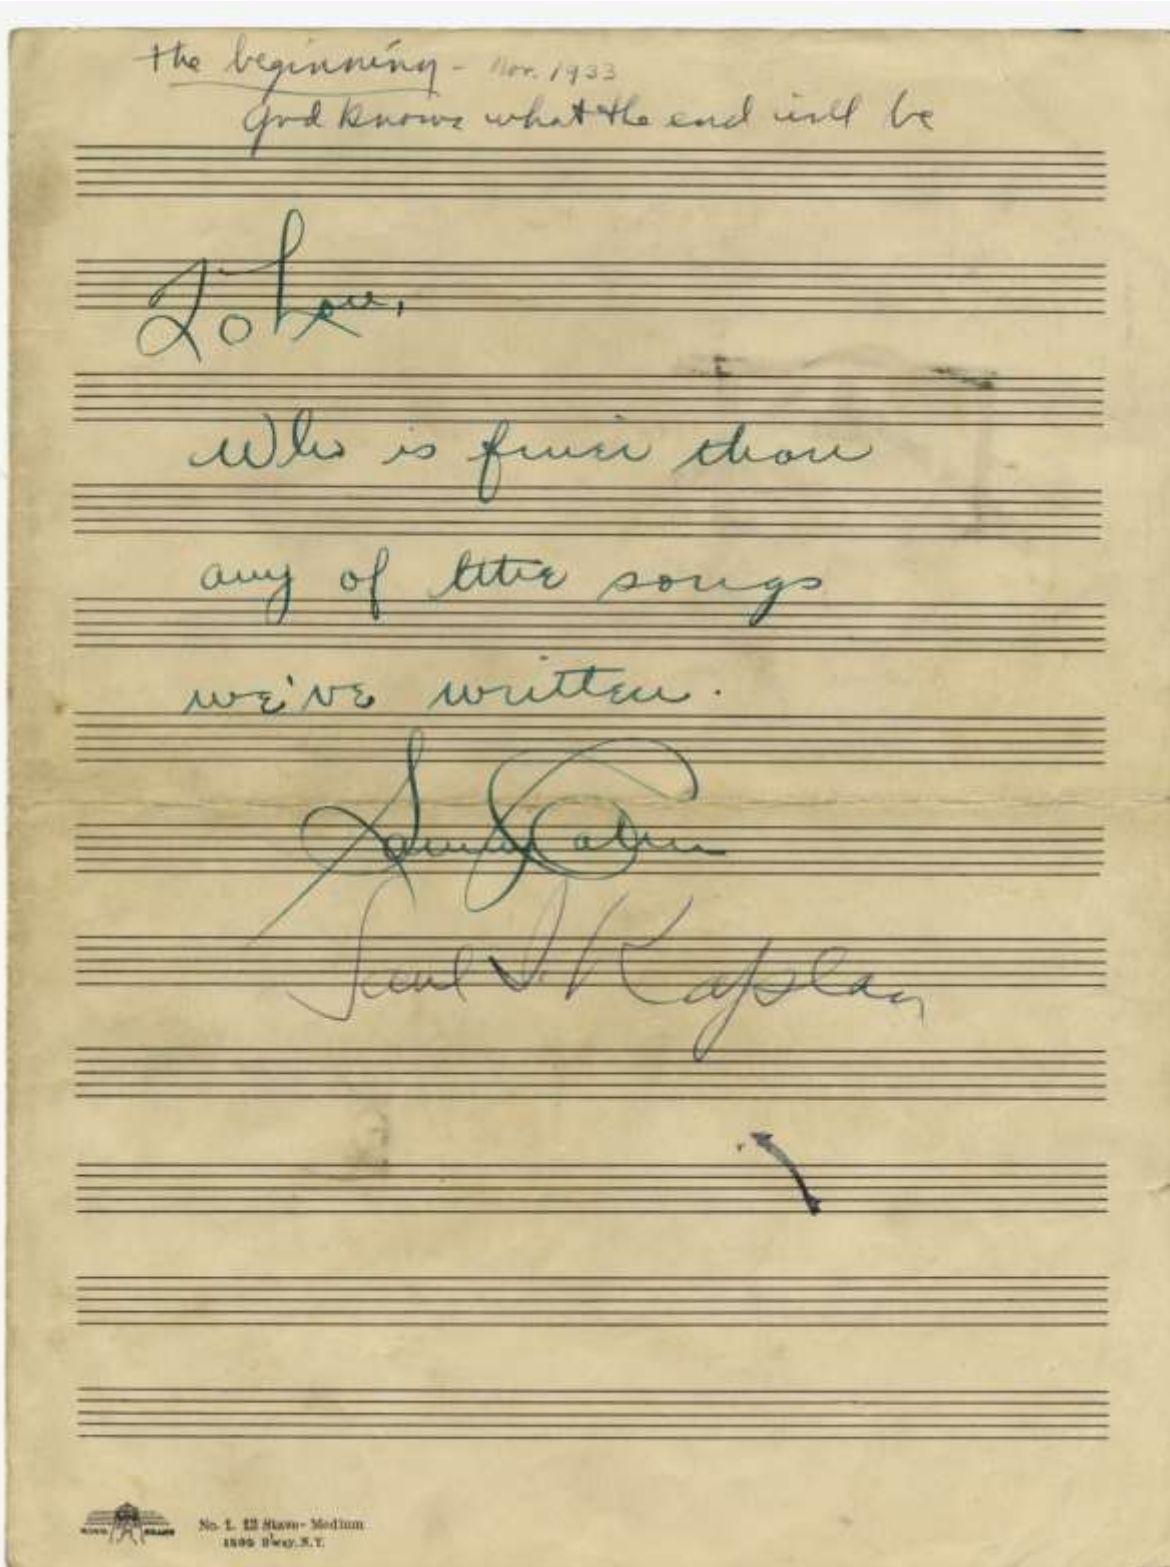 the beginning - Nov. 1933
God knows what the end will be
To Lou,
Who is finer than
any of the songs
we've written.
Sammy Cahn
Saul Kaplan
No. 1. 12 Stave - Medium
1595 B'way, N.Y.